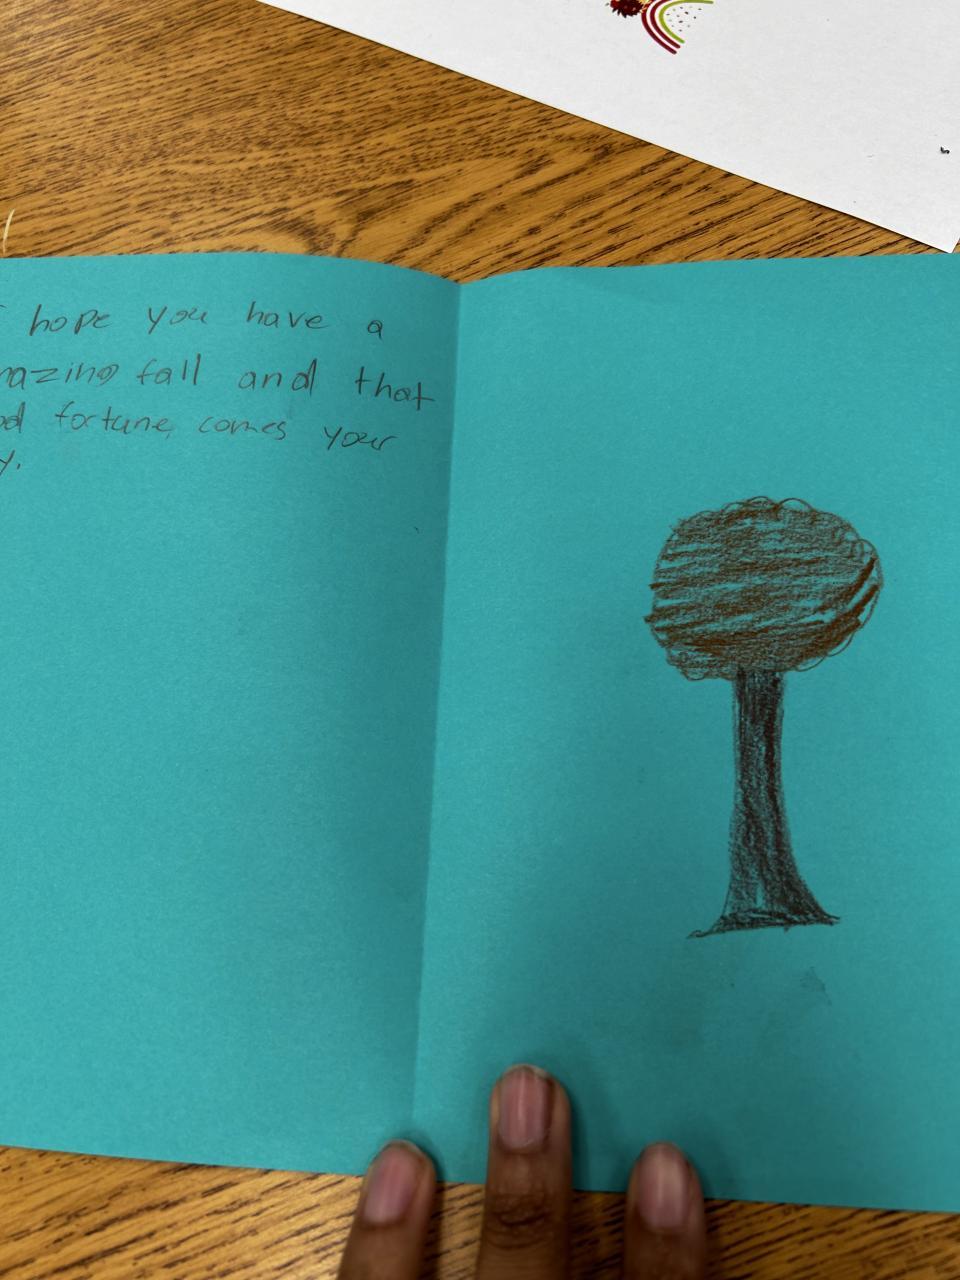 I hope you have a
mazing fall and that
od fortune comes your
y.